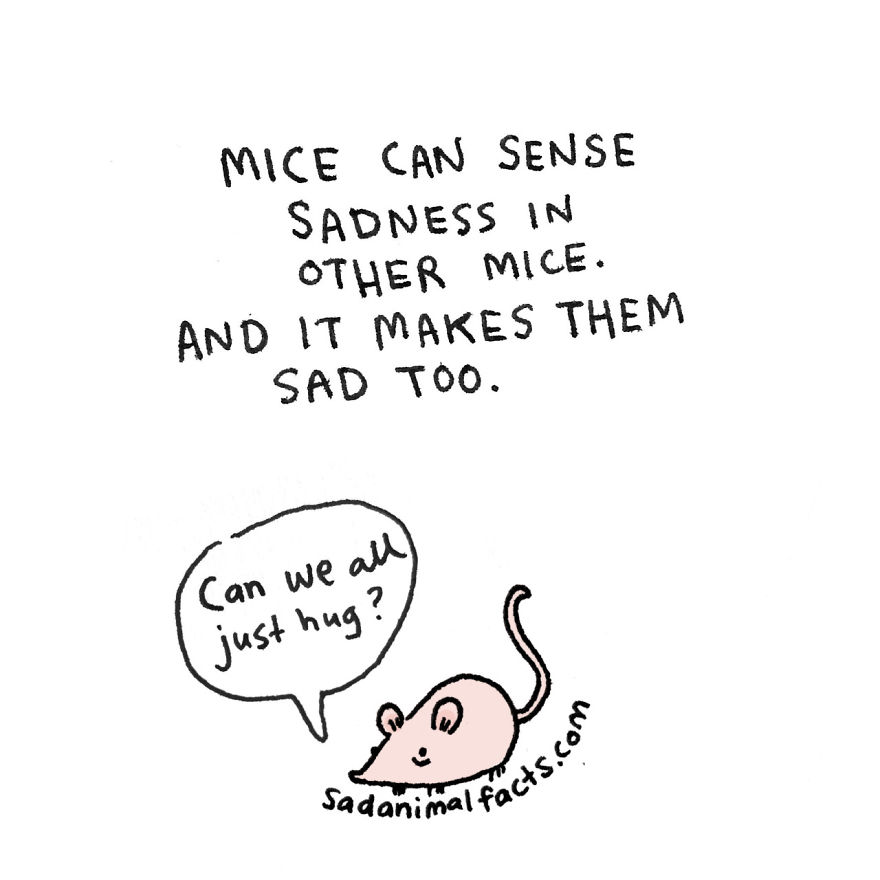 MICE CAN SENSE
SADNESS IN
OTHER MICE.
AND IT MAKES THEM
SAD TOO.
Can we all
just hug?
sadanimalfacts.com